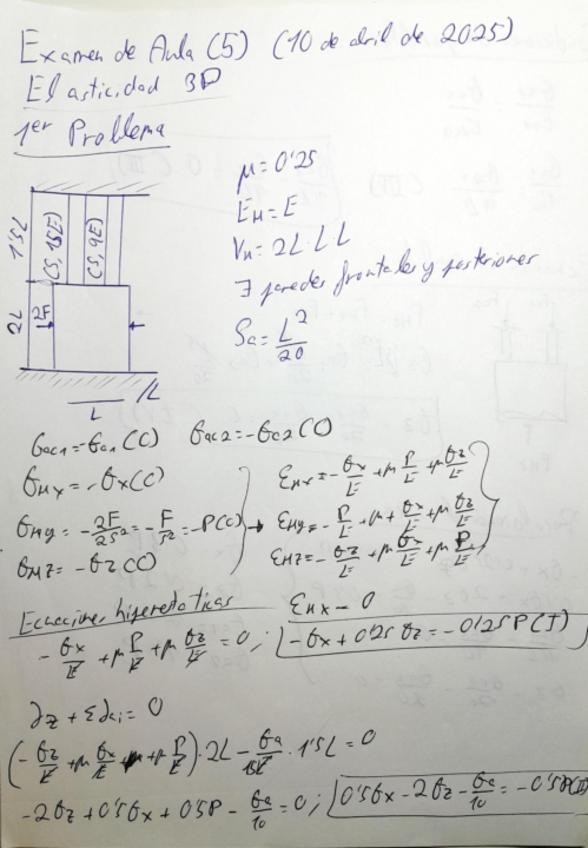 Examen de Aula (5) (10 de abril de 2025)
Elasticidad 3D
1er Problema
μ = 0'25
E_H = E
V_H = 2L·L·L
∃ paredes frontales y posteriores
S_a = L²/20
1'5L
(S, 15E)
(S, 9E)
2L
2F
L
L
σac1 = -σa1 (C) σac2 = -σc2 (C)
σHx = -σx (C)
σHy = -2F/2S² = -F/S² = -P (C)
σHz = -σz (C)
εHx = -σx/E + μ P/E + μ σz/E
εHy = -P/E + μ + σx/E + μ σz/E
εHz = -σz/E + μ σx/E + μ P/E
Ecuaciones hiperestáticas εHx = 0
-σx/E + μ P/E + μ σz/E = 0; -σx + 0'25 σz = -0'25P (I)
∂z + Σ∂ai = 0
(-σz/E + μ σx/E + μ P/E)·2L - σa/15E · 1'5L = 0
-2σz + 0'5σx + 0'5P - σa/10 = 0; 0'5σx - 2σz - σa/10 = -0'5P (II)